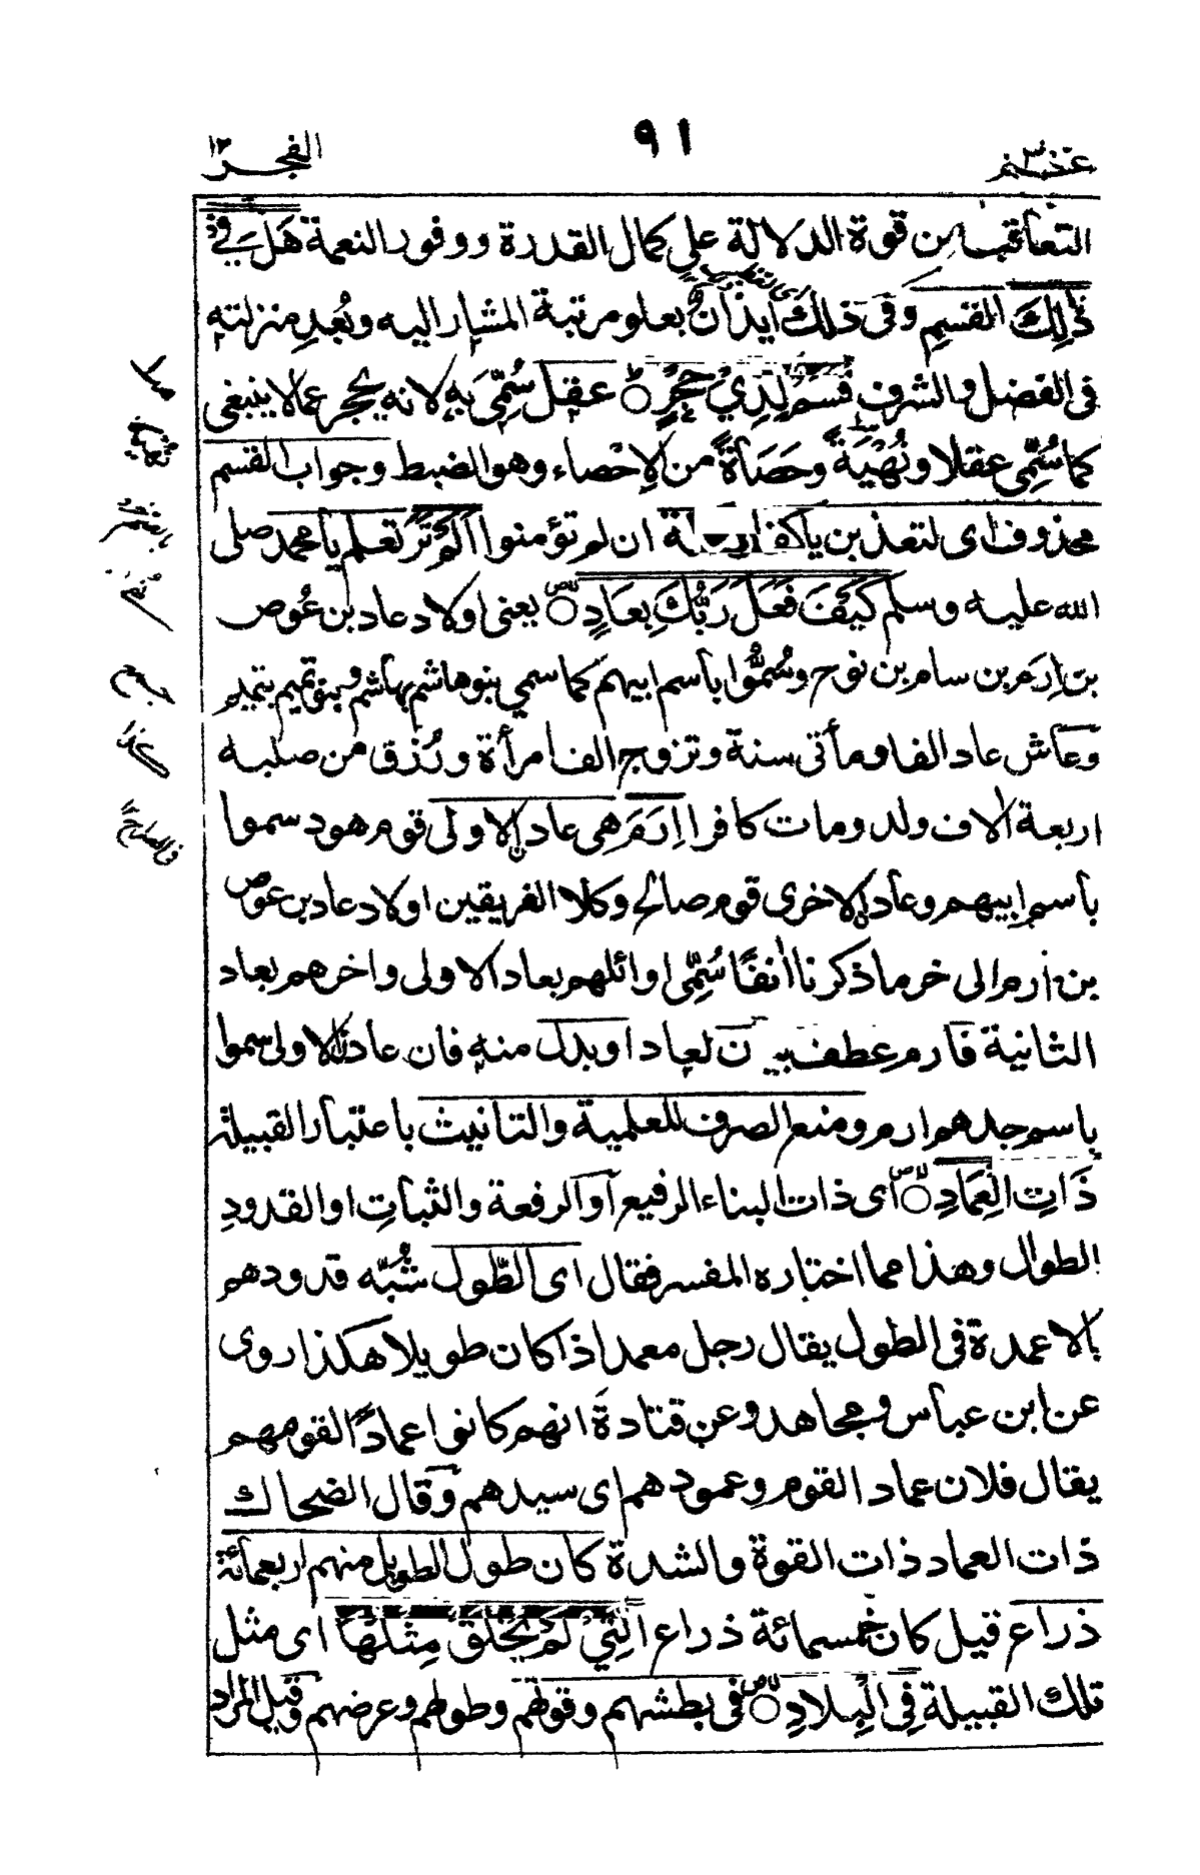 عمّ ٣٠
٩١
الفجر ١٢
التعاقب من قوة الدلالة على كمال القدرة ووفور النعمة هَلْ فِيْ
ذٰلِكَ القسم وفى ذلك ايذانٌ بعلو مرتبة المشار اليه وبُعدِ منزلته
فى الفضل والشرف قَسَمٌ لِّذِيْ حِجْرٍ○ عقل سُمِّىَ به لانه يحجر عما لا ينبغى
كما سُمِّى عقلا ونُهْيَةً وحَصَاةً من الاِحْصاء وهو الضبط وجواب القسم
محذوف اى لتعذبن يا كفار مكة ان لم تؤمنوا اَلَمْ تَرَ تعلم يا محمد صلى
الله عليه وسلم كَيْفَ فَعَلَ رَبُّكَ بِعَادٍ○ يعنى اولاد عاد بن عُوص
بن اِرَم بن سام بن نوح وسُمُّوا باسم ابيهم كما سمي بنو هاشم بهاشم وبنو تميم بتميم
وعاش عاد الفا ومأتى سنة وتزوج الف امرأة ورُزق من صلبه
اربعة الاف ولد ومات كافرا اِرَمَ هى عاد الاولى قوم هود سموا
باسم ابيهم وعاد الاخرى قوم صالح وكلا الفريقين اولاد عاد بن عوص
بن ارم الى خر ما ذكرنا اٰنفًا سُمِّى اوائلهم بعاد الاولى واخرهم بعاد
الثانية فارم عطف بيان لعاد او بدل منه فان عاد الاولى سموا
باسم جدهم ارم ومنع الصرف للعلمية والتانيث باعتبار القبيلة
ذَاتِ الْعِمَادِ○ اى ذات البناء الرفيع او الرفعة والثبات او القدود
الطوال وهذا مما اختاره المفسر فقال اى الطّول شُبّه قدودهم
بالاعمدة فى الطول يقال رجل معمد اذا كان طويلا هكذا روى
عن ابن عباس ومجاهد وعن قتادة انهم كانوا عمادًا لقومهم
يقال فلان عماد القوم وعمودهم اى سيدهم وقال الضحاك
ذات العماد ذات القوة والشدة كان طول الطويل منهم اربعمائة
ذراع قيل كان خمسمائة ذراع الَّتِيْ لَمْ يُخْلَقْ مِثْلُهَا اى مثل
تلك القبيلة فِى الْبِلَادِ○ فى بطشهم وقوتهم وطولهم وعرضهم وقيل المراد